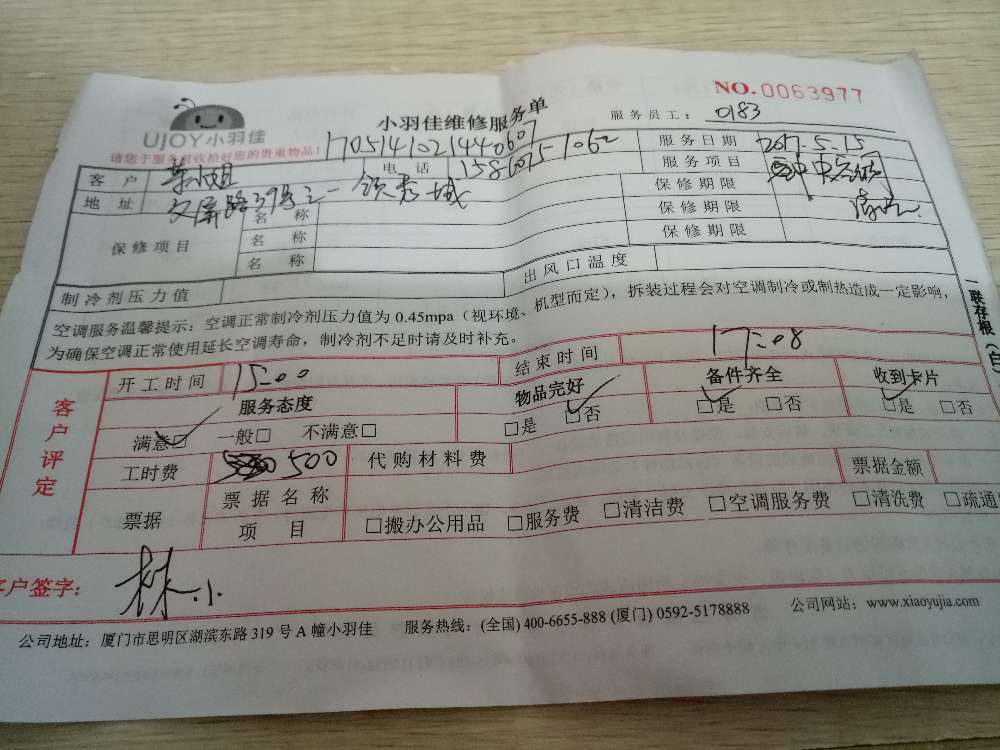 NO.0063977
UJOY小羽佳
小羽佳维修服务单
服务员工： 0183
请您于服务验收拾好您的贵重物品！
17051410214440607
客户 小姐 电话 服务日期 2017.5.15
地址 文屏路39号之一 领秀城 服务项目 中央空调
保修项目 名称 保修期限
名称 保修期限 清洗
名称 保修期限
制冷剂压力值 出风口温度
空调服务温馨提示：空调正常制冷剂压力值为 0.45mpa（视环境、机型而定），拆装过程会对空调制冷或制热造成一定影响，
为确保空调正常使用延长空调寿命，制冷剂不足时请及时补充。
一联存根（白
客户评定
开工时间 15:00 结束时间 17:08
服务态度 物品完好 备件齐全 收到卡片
满意□ 一般□ 不满意□ □是 □否 □是 □否 □是 □否
工时费 500 代购材料费
票据 票据名称 票据金额
项目 □搬办公用品 □服务费 □清洁费 □空调服务费 □清洗费 □疏通
客户签字： 林小
公司地址：厦门市思明区湖滨东路 319 号 A 幢小羽佳 服务热线：(全国) 400-6655-888 (厦门) 0592-5178888 公司网站：www.xiaoyujia.com